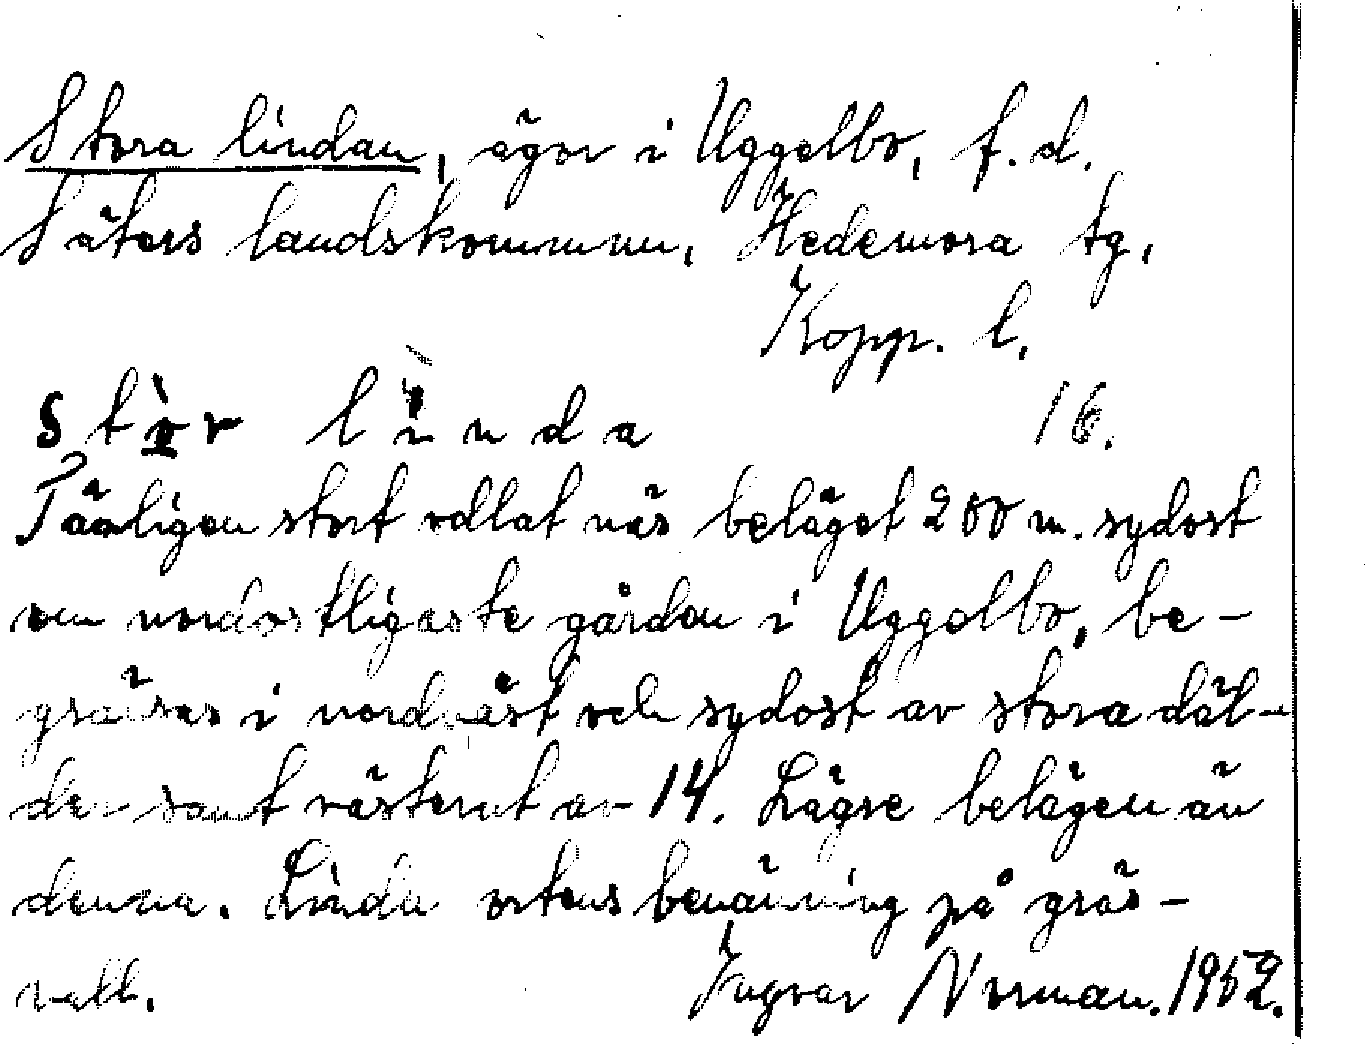 Stora lindan, ägor i Uggelbo, f.d.
Säters landskommun, Hedemora tg,
Kopp. l.
stòr linda 16.
Tämligen stort odlat näs beläget 200 m. sydost
om nordostligaste gården i Uggelbo, be-
gränsas i nordväst och sydost av stora däl-
der samt västerut av 14. Lägre belägen än
denna. Linda ortens benämning på gräs-
vall. Ingvar Norman. 1952.